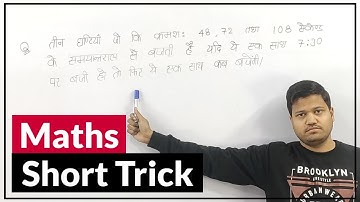 Q तीन घण्टियाँ जो कि क्रमशः 48, 72 तथा 108 सैकेण्ड
के समयान्तराल से बजती हैं यदि ये एक साथ 7:30
पर बजी हो तो फिर ये एक साथ कब बजेंगी।
Maths
Short Trick
BROOKLYN
LIFESTYLE
URBANWEAR